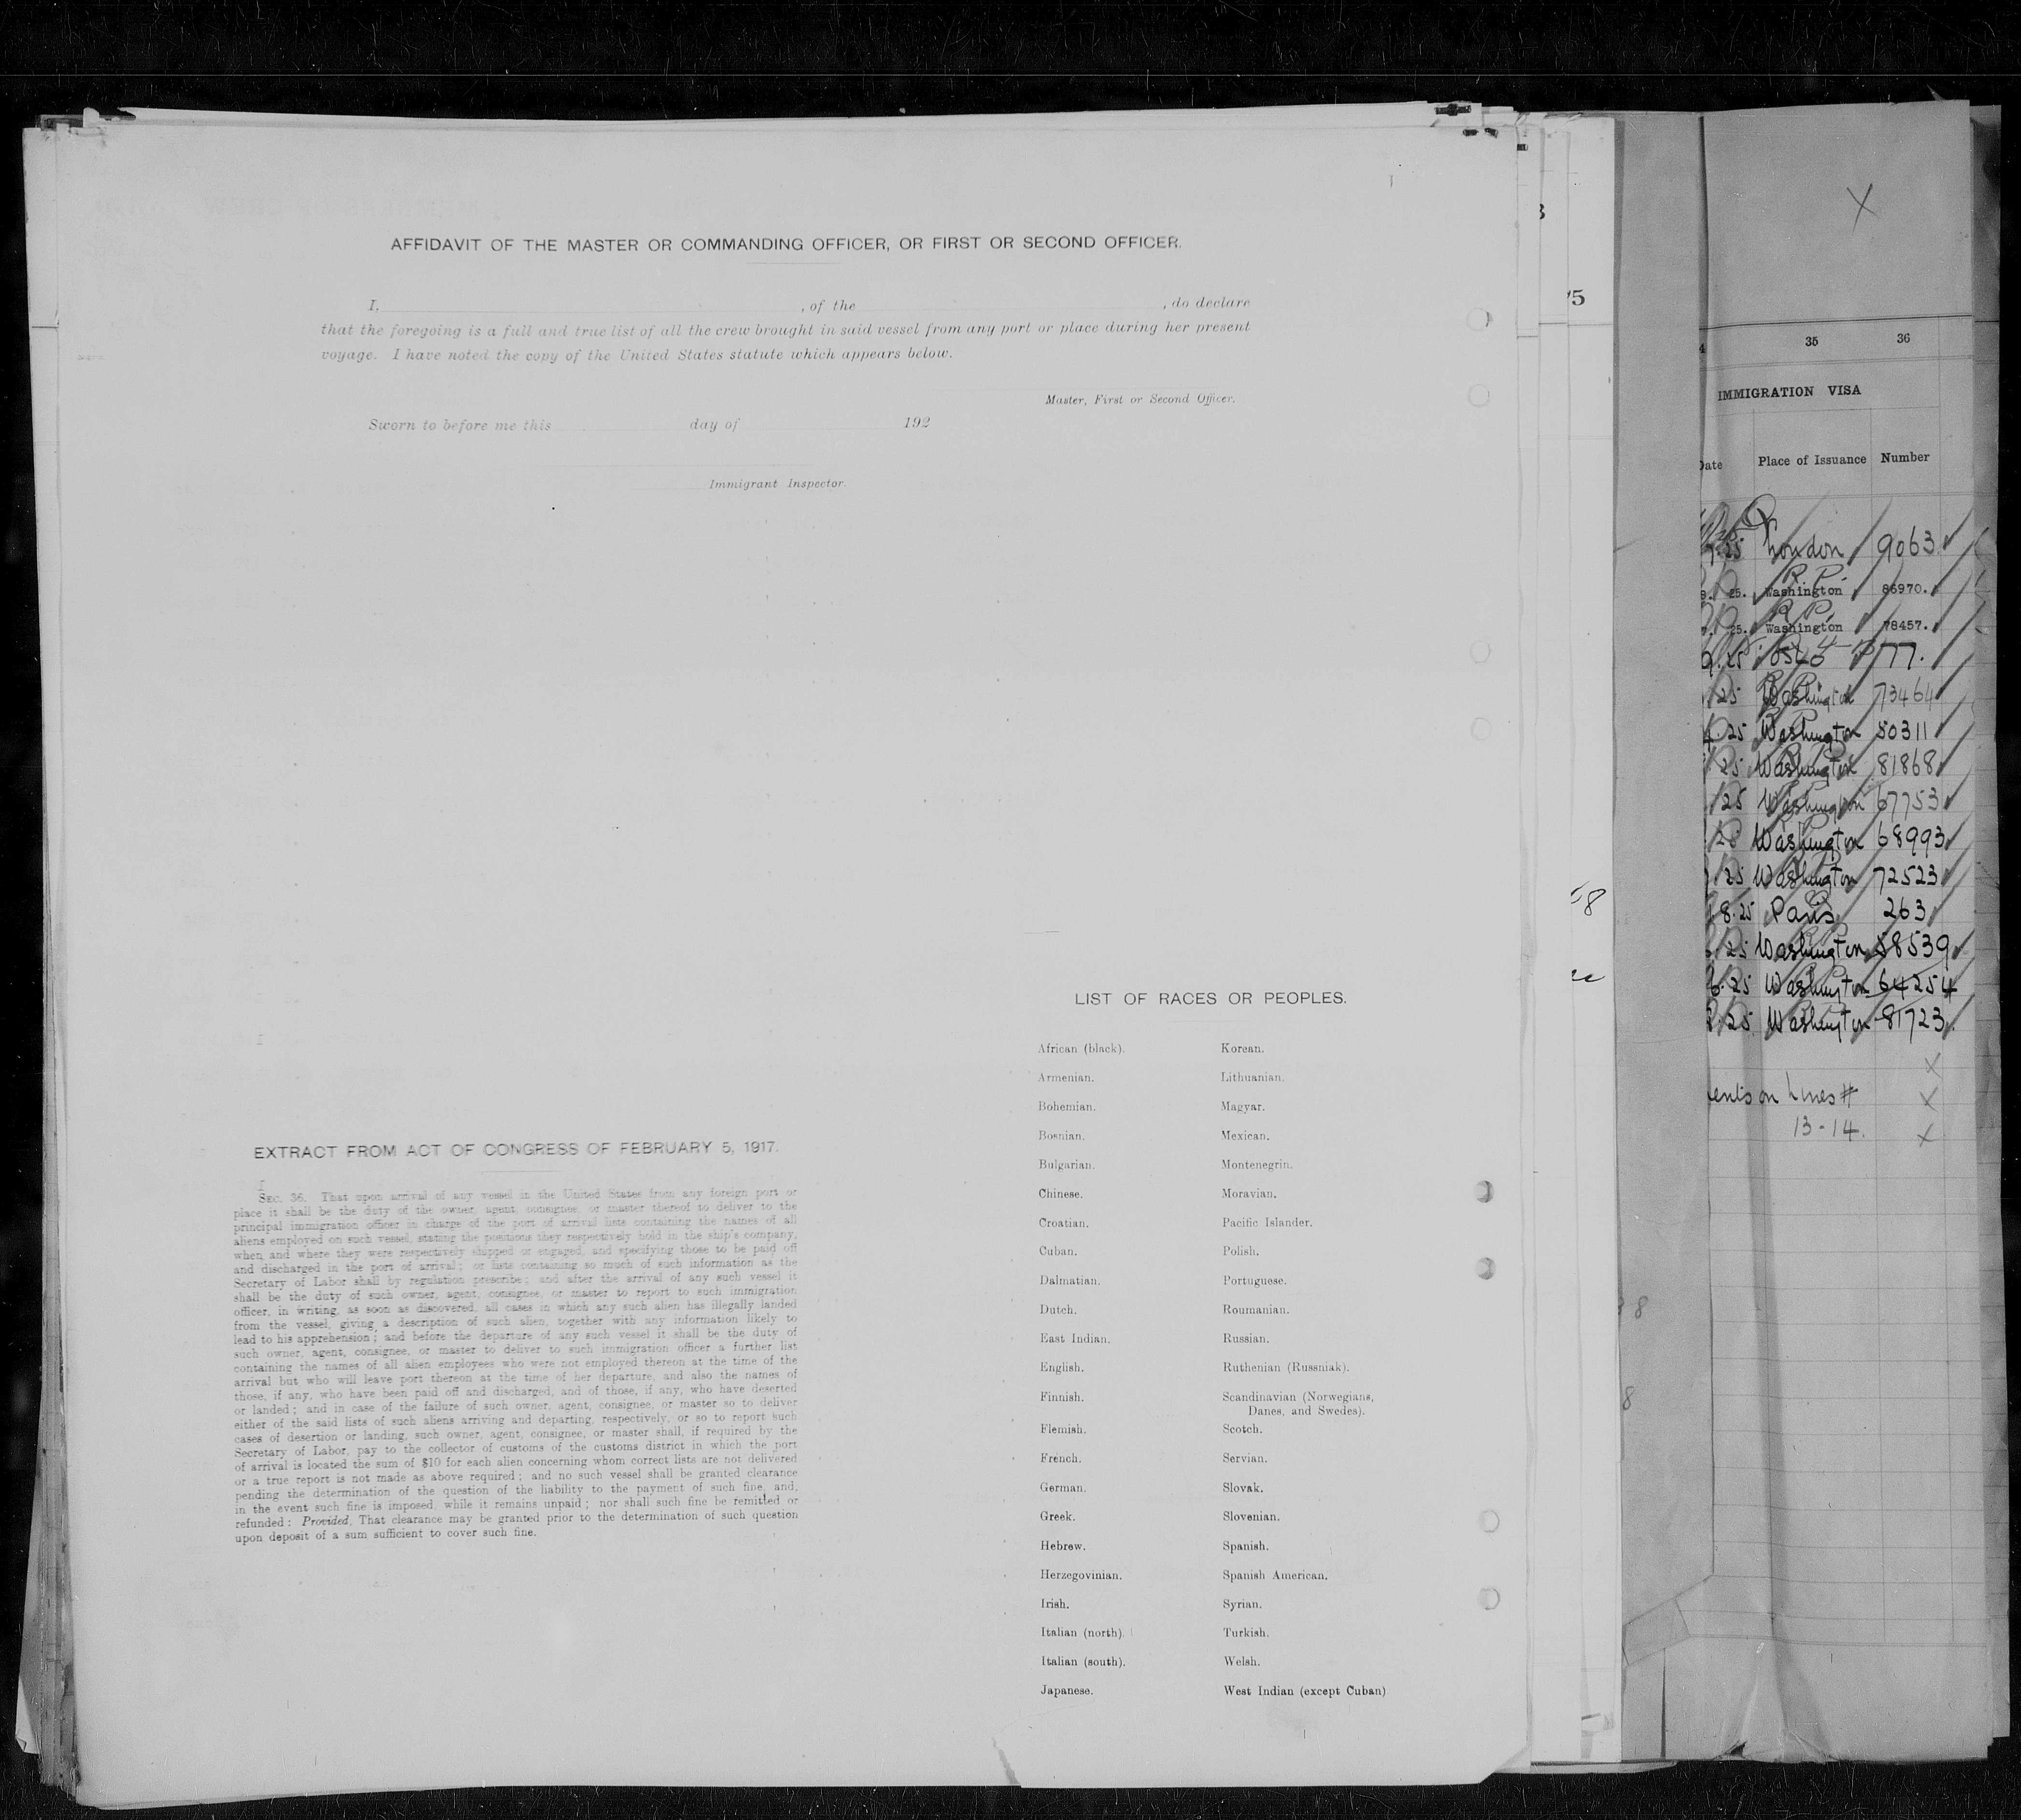 AFFIDAVIT OF THE MASTER OR COMMANDING OFFICER, OR FIRST OR SECOND OFFICER.
I, , of the , do declare
that the foregoing is a full and true list of all the crew brought in said vessel from any port or place during her present
voyage. I have noted the copy of the United States statute which appears below.
Master, First or Second Officer.
Sworn to before me this day of 192
Immigrant Inspector.
EXTRACT FROM ACT OF CONGRESS OF FEBRUARY 5, 1917.
SEC. 36. That upon arrival of any vessel in the United States from any foreign port or
place it shall be the duty of the owner, agent, consignee, or master thereof to deliver to the
principal immigration officer in charge of the port of arrival lists containing the names of all
aliens employed on such vessel, stating the positions they respectively hold in the ship's company,
when and where they were respectively shipped or engaged, and specifying those to be paid off
and discharged in the port of arrival; or lists containing so much of such information as the
Secretary of Labor shall by regulation prescribe; and after the arrival of any such vessel it
shall be the duty of such owner, agent, consignee, or master to report to such immigration
officer, in writing, as soon as discovered, all cases in which any such alien has illegally landed
from the vessel, giving a description of such alien, together with any information likely to
lead to his apprehension; and before the departure of any such vessel it shall be the duty of
such owner, agent, consignee, or master to deliver to such immigration officer a further list
containing the names of all alien employees who were not employed thereon at the time of the
arrival but who will leave port thereon at the time of her departure, and also the names of
those, if any, who have been paid off and discharged, and of those, if any, who have deserted
or landed; and in case of the failure of such owner, agent, consignee, or master so to deliver
either of the said lists of such aliens arriving and departing, respectively, or so to report such
cases of desertion or landing, such owner, agent, consignee, or master shall, if required by the
Secretary of Labor, pay to the collector of customs of the customs district in which the port
of arrival is located the sum of $10 for each alien concerning whom correct lists are not delivered
or a true report is not made as above required; and no such vessel shall be granted clearance
pending the determination of the question of the liability to the payment of such fine, and,
in the event such fine is imposed, while it remains unpaid; nor shall such fine be remitted or
refunded: Provided, That clearance may be granted prior to the determination of such question
upon deposit of a sum sufficient to cover such fine.
LIST OF RACES OR PEOPLES.
African (black).
Armenian.
Bohemian.
Bosnian.
Bulgarian.
Chinese.
Croatian.
Cuban.
Dalmatian.
Dutch.
East Indian.
English.
Finnish.
Flemish.
French.
German.
Greek.
Hebrew.
Herzegovinian.
Irish.
Italian (north).
Italian (south).
Japanese.
Korean.
Lithuanian.
Magyar.
Mexican.
Montenegrin.
Moravian.
Pacific Islander.
Polish.
Portuguese.
Roumanian.
Russian.
Ruthenian (Russniak).
Scandinavian (Norwegians,
Danes, and Swedes).
Scotch.
Servian.
Slovak.
Slovenian.
Spanish.
Spanish American.
Syrian.
Turkish.
Welsh.
West Indian (except Cuban)
35 36
IMMIGRATION VISA
Date Place of Issuance Number
25 London 9063
R.P.
25. Washington 86970.
R.P.
25. Washington 78457.
25 Oslo 77.
25 Washington 73464
25 Washington 50311
25 Washington 81868
25 Washington 67753
25 Washington 68993
25 Washington 72523
8.25 Paris 263
25 Washington 58539
25 Washington 64254
25 Washington 81723
on Lines #
13-14.